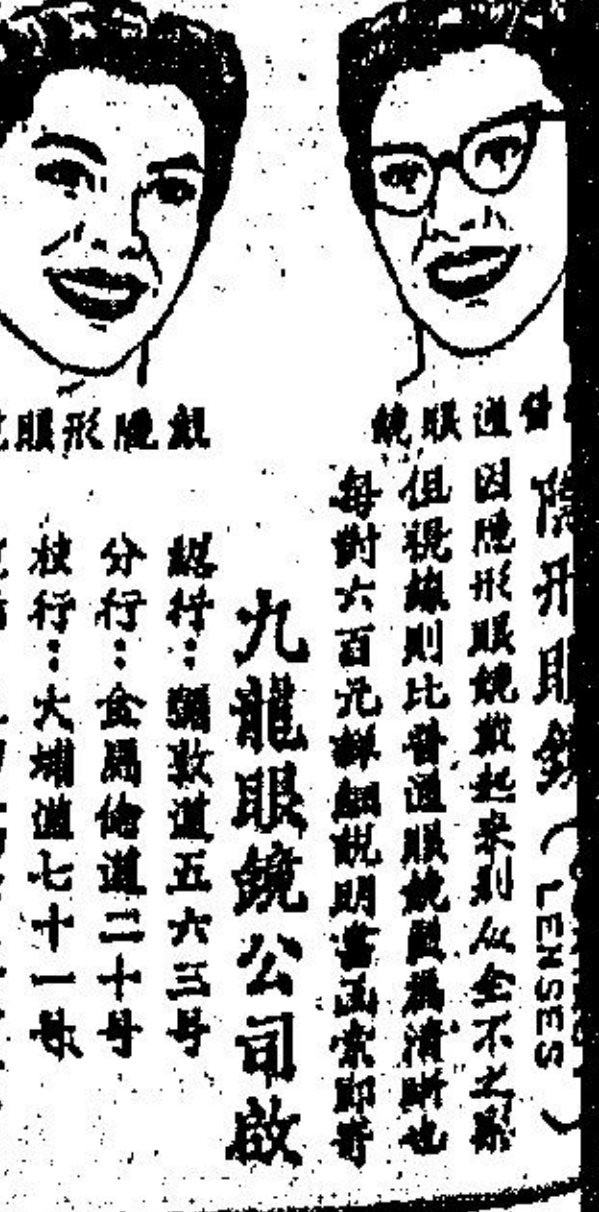 普通眼鏡
戴隱形眼
隱形眼鏡
(CONTACT LENSES)
因隱形眼鏡戴起來別人全不之察
但視線則比普通眼鏡更為清晰也
每對六百元詳細說明書函索即寄
九龍眼鏡公司啟
總行：彌敦道五六三号
分行：金馬倫道二十号
枝行：大埔道七十一号